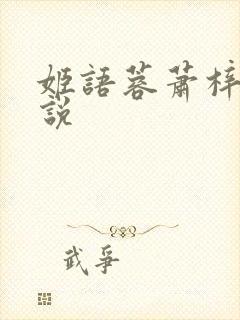 姬語蓉蕭梓
說
武爭